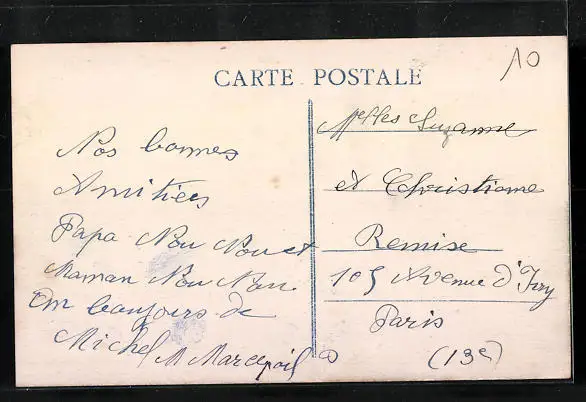 10
CARTE POSTALE
Nos bonnes
Amitiés
Papa Nou Nou et
Maman Nou Nou
bonjours de
Michel M
Melles Suzanne
et Christiane
Remise
105 Avenue d'Ivry
Paris
(13e)